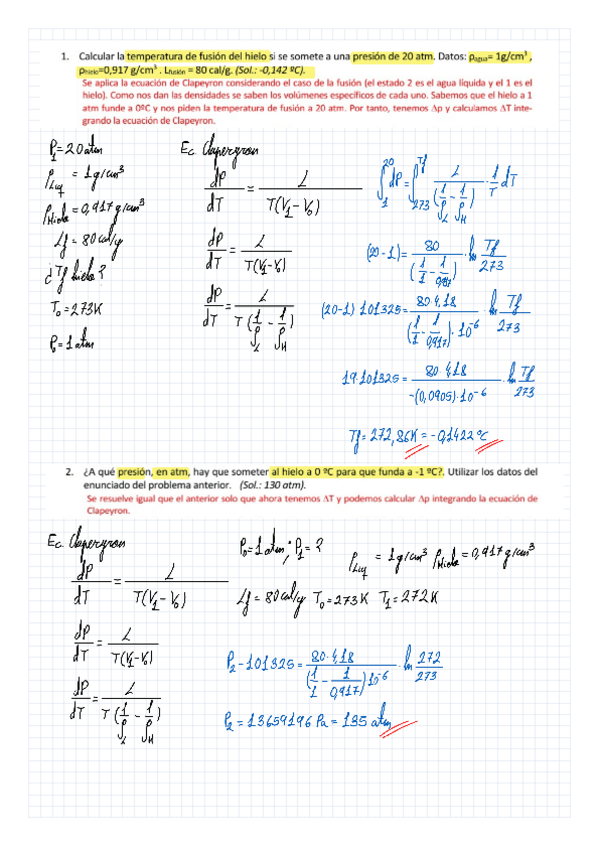 1. Calcular la temperatura de fusión del hielo si se somete a una presión de 20 atm. Datos: ρagua= 1g/cm³ ,
ρhielo=0,917 g/cm³ . Lfusión = 80 cal/g. (Sol.: -0,142 ºC).
Se aplica la ecuación de Clapeyron considerando el caso de la fusión (el estado 2 es el agua líquida y el 1 es el
hielo). Como nos dan las densidades se saben los volúmenes específicos de cada uno. Sabemos que el hielo a 1
atm funde a 0ºC y nos piden la temperatura de fusión a 20 atm. Por tanto, tenemos Δp y calculamos ΔT inte-
grando la ecuación de Clapeyron.
P₁=20atm
ρLíq = 1g/cm³
ρHielo=0,917g/cm³
Lf = 80cal/g
¿Tf hielo?
T₀=273K
P₀=1atm
Ec. Clapergron
dP/dT = L/T(V₁-V₀)
dP/dT = L/T(V₁-V₀)
dP/dT = L/T(1/ρL - 1/ρH)
∫₁²⁰ dP=∫₂₇₃^Tf L/(1/ρL - 1/ρH) · 1/T dT
(20-1)= 80/(1/1 - 1/0,917) · ln Tf/273
(20-1) 101325= 80·4,18/(1/1 - 1/0,917)·10⁻⁶ · ln Tf/273
19·101325 = 80·4,18/-(0,0905)·10⁻⁶ · ln Tf/273
Tf= 272,86K = -0,1422ºC
2. ¿A qué presión, en atm, hay que someter al hielo a 0 ºC para que funda a -1 ºC?. Utilizar los datos del
enunciado del problema anterior. (Sol.: 130 atm).
Se resuelve igual que el anterior solo que ahora tenemos ΔT y podemos calcular Δp integrando la ecuación de
Clapeyron.
Ec. Clapergron
dP/dT = L/T(V₁-V₀)
dP/dT = L/T(V₁-V₀)
dP/dT = L/T(1/ρL - 1/ρH)
P₀=1atm; P₁=?
ρLíq = 1g/cm³ ρHielo=0,917g/cm³
Lf = 80cal/g T₀=273K T₁=272K
P₂-101325= 80·4,18/(1/1 - 1/0,917)10⁻⁶ · ln 272/273
P₂ = 13659196 Pa = 135 atm